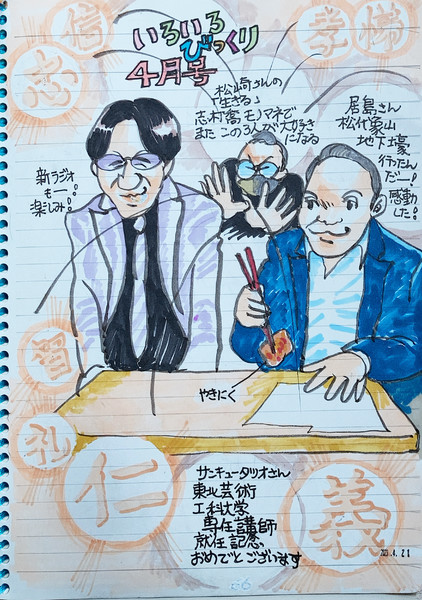 いろいろ
びっくり
4月号
忠
信
孝
悌
松崎さんの
「生きる」
志村喬モノマネで
また この3人が大好き
になる
居島さん
松代象山
地下壕
行ったん
だー!
感動
した!
新ラジオ
もー!
楽しみ!
やきにく
智
礼
仁
義
サンキュータツオさん
東北芸術
工科大学
専任講師
就任記念
おめでとございます